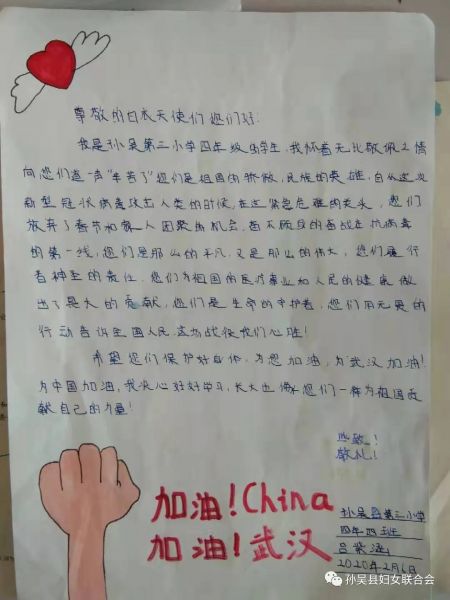 尊敬的白衣天使们您们好:
我是孙吴第三小学四年级的学生,我怀着无比敬佩之情
向您们道一声"辛苦了"您们是祖国的骄傲,民族的英雄,自从这次
新型冠状病毒攻击人类的时候,在这紧急危难的关头,您们
放弃了春节和家人团聚的机会,奋不顾身的奋战在抗病毒
的第一线,您们是那么的平凡,又是那么的伟大,您们履行
着神圣的责任,您们为祖国的医疗事业和人民的健康做
出了巨大的贡献,您们是生命的守护者,您们用无畏的
行动告诉全国人民,这场战役我们必胜!
希望您们保护好自己,为您加油,为武汉加油!
为中国加油,我决心好好学习,长大也像您们一样为祖国贡
献自己的力量!
此致!
敬礼!
加油!China
加油!武汉
孙吴县第三小学
四年四班
吕紫涵
2020年2月6日
孙吴县妇女联合会